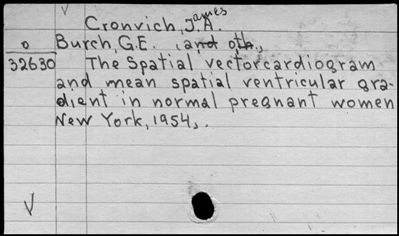 Cronvich, James A.
o Burch, G.E. , and oth.,
32630 The Spatial vectorcardiogram
and mean spatial ventricular gra-
dient in normal pregnant women
New York, 1954,.